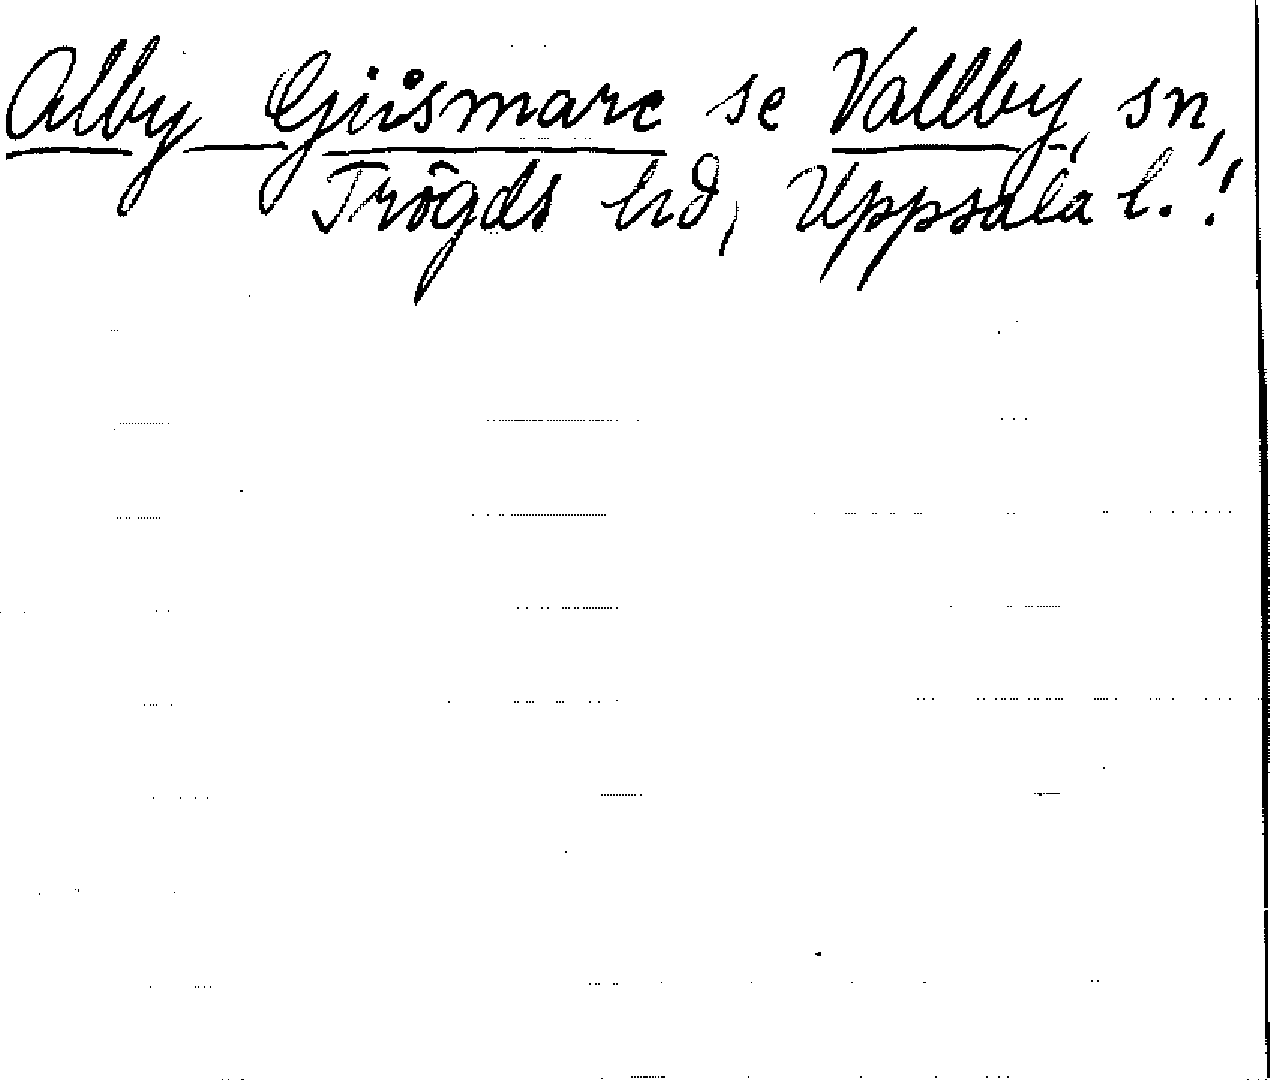 Alby Gisåmare se Vallby sn,
Trögds hd, Uppsala l.!